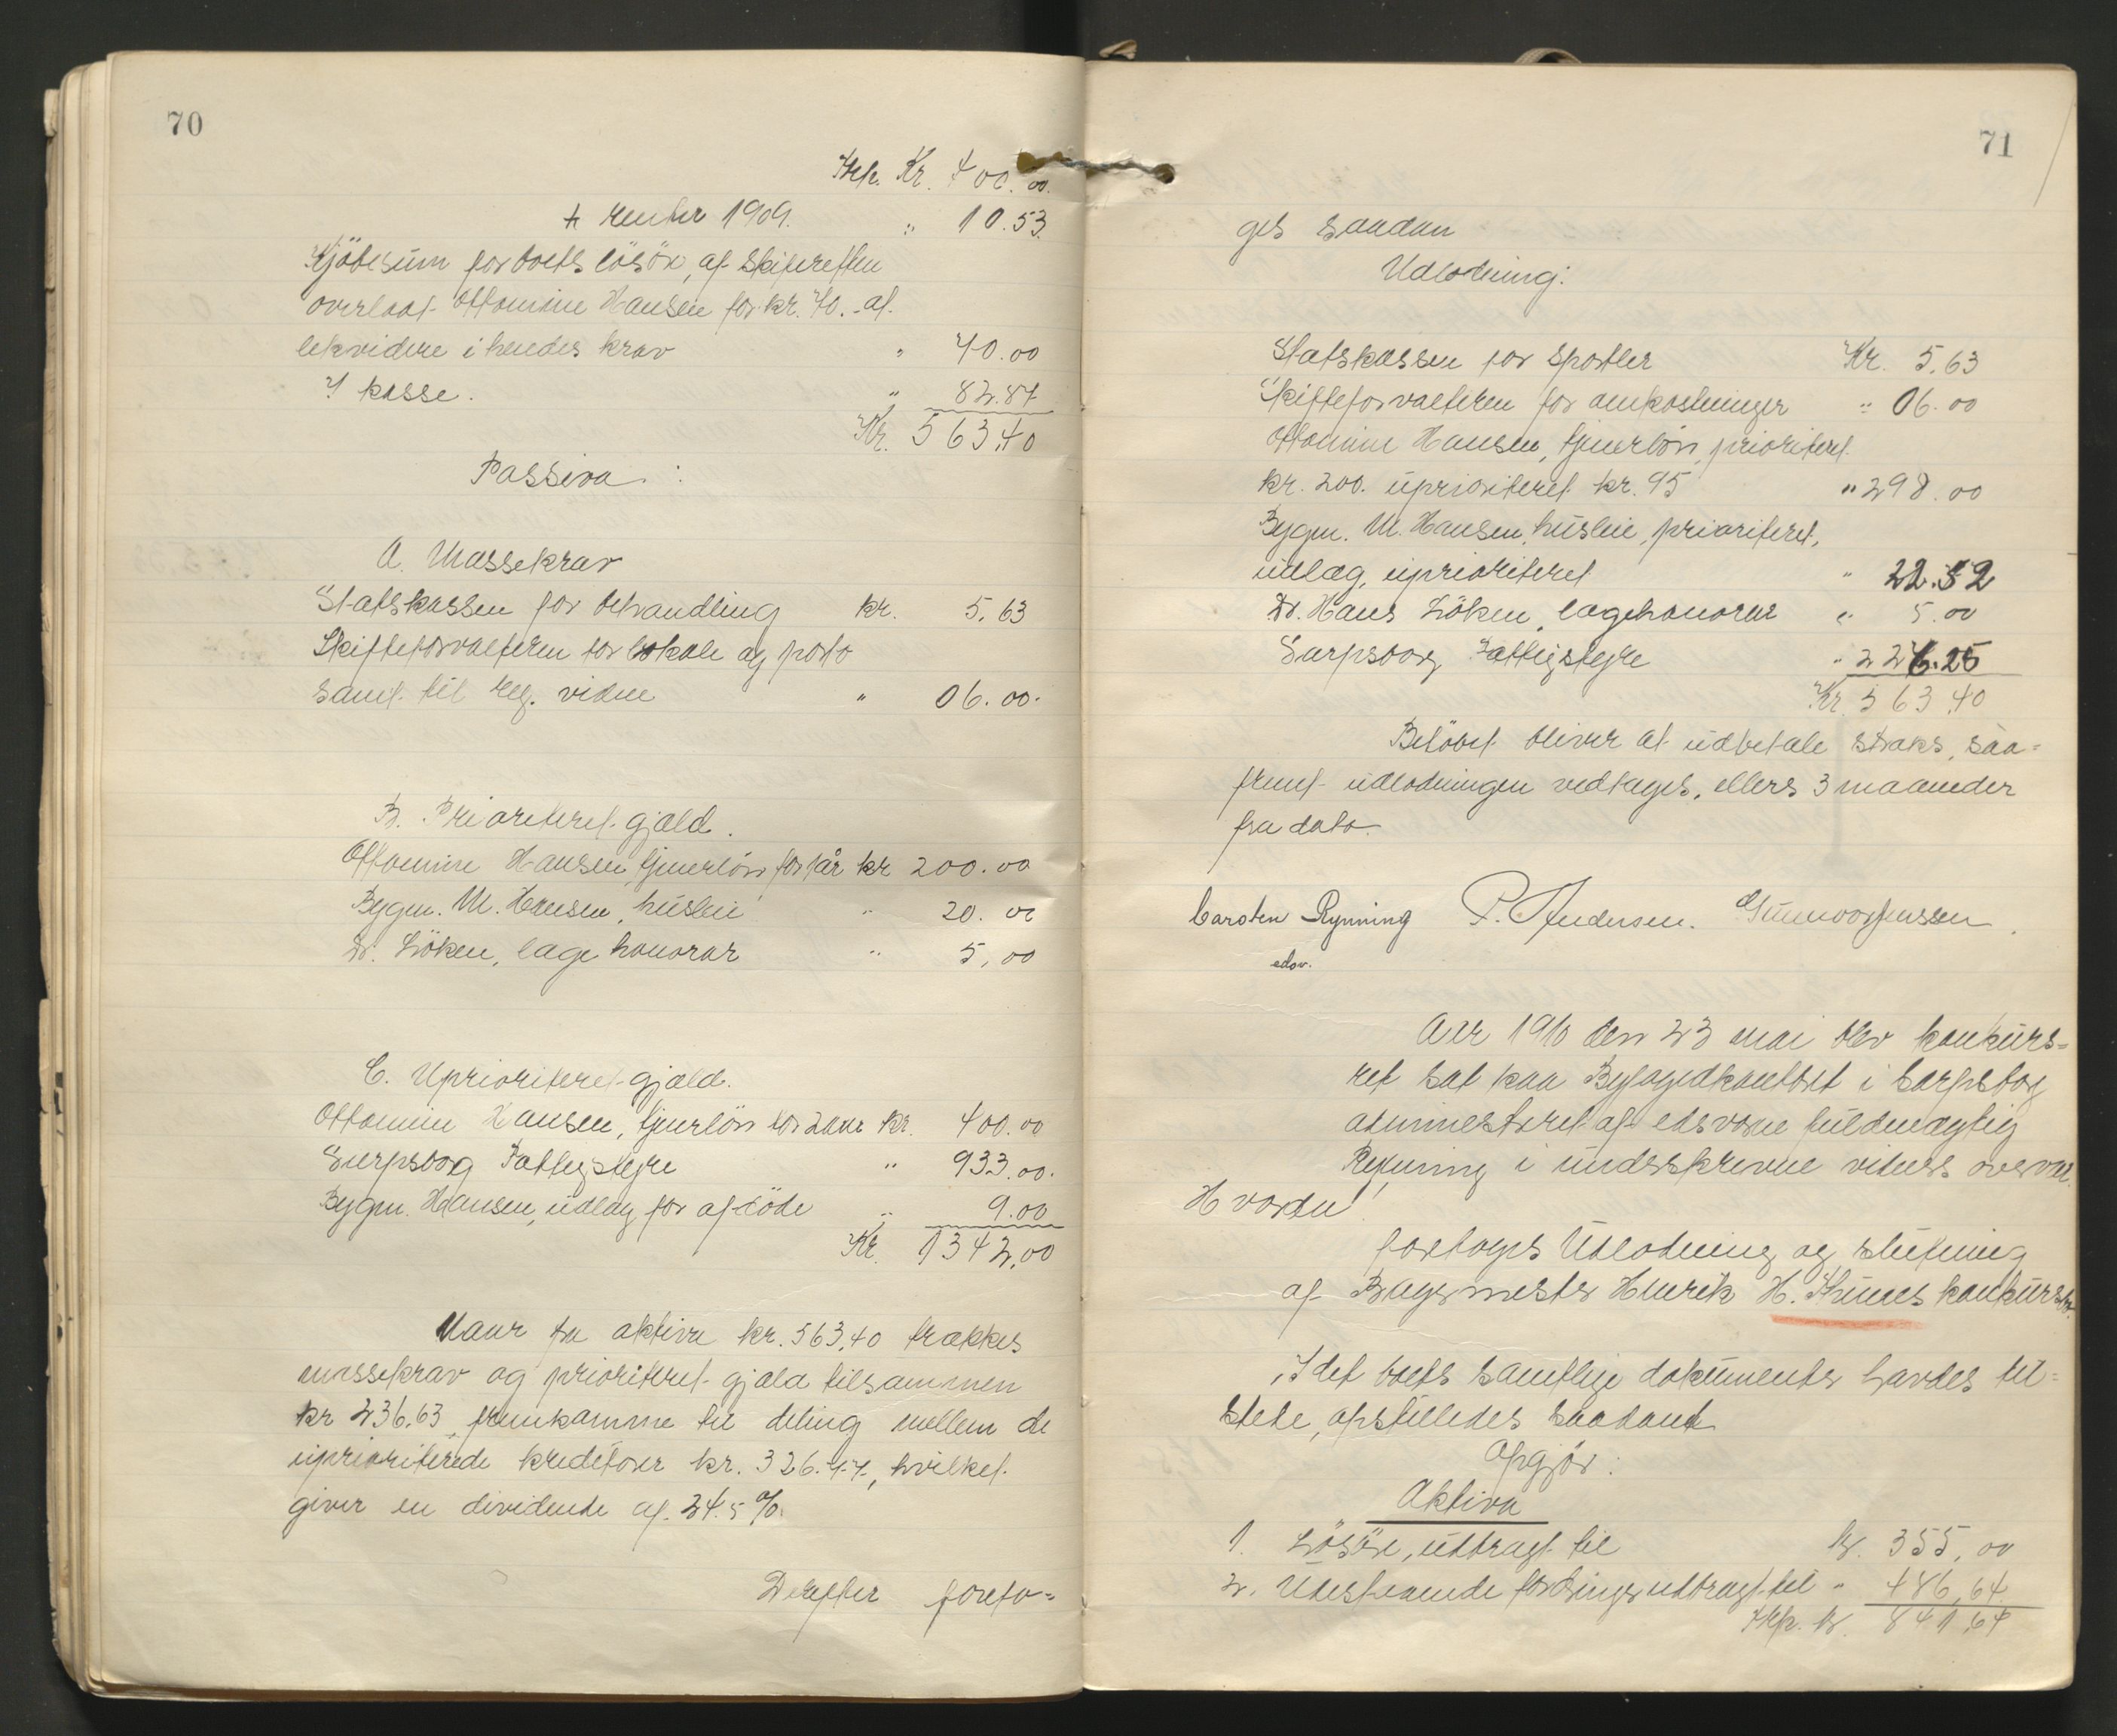 70
Trsp. Kr. 400.00.
+ renter 1909. " 10.53.
Kjöbesum for boets lösöre, af skifteretten
overladt Ottomine Hansen for kr. 70.- at
likvidere i hendes krav " 70.00
I kasse. " 82.87
Kr. 563,40
Passiva:
A. Massekrav
Statskassen for behandling kr. 5.63
Skifteforvalteren for lokale og porto
samt til reg. vidne " 06.00.
B. Prioriteret gjæld.
Ottomine Hansen, tjenerlön for 1 år kr 200.00
Bygm. M. Hansen, husleie " 20.00
Dr. Löken, lægehonorar " 5,00
C. Uprioriteret gjæld.
Ottomine Hansen, tjenerlön for 2 aar kr. 400.00
Sarpsborg Fattigstyre " 933.00.
Bygm. Hansen, udlæg for afdöde " 9.00
Kr. 1342,00
Naar fra aktiva kr. 563,40 trækkes
massekrav og prioriteret gjæld tilsammen
kr 236.63 fremkomme til deling mellem de
uprioriterede kreditorer kr. 326.77, hvilket
giver en dividende af 24.5 %.
Derefter foreto-
71
ges saadan
Udlodning:
Statskassen for sportler Kr. 5.63
Skifteforvalteren for omkostninger " 06.00
Ottomine Hansen, tjenerlön, prioriteret
kr. 200. uprioriteret kr. 95 " 298.00
Bygm. M. Hansen, husleie, prioriteret,
udlæg, uprioriteret " 22.52
Dr. Hans Löken, lægehonorar " 5.00
Sarpsborg Fattigstyre " 226.25
Kr. 563,40
Belöbet bliver at udbetale straks, saa-
fremt udlodningen vedtages, ellers 3 maaneder
fra dato.
Carsten Rynning P. Andersen. Gunvor Jenssen.
edsv.
Aar 1910 den 23 mai blev konkurs-
ret sat paa Byfogedkontoret i Sarpsborg
administreret af edsvorne fuldmægtig
Rynning i underskrevne vidners overvær.
Hvorda
foretoges Udlodning og slutning
af Bagermester Henrik H. Thunes konkursbo.
Idet boets samtlige dokumenter havdes til-
stede, opstilledes saadant
Opgjör:
Aktiva
1. Lösöre, uddragt til kr. 355,00
2. Udestaaende fordringer uddragt til " 486,64
Trsp. kr. 841,64